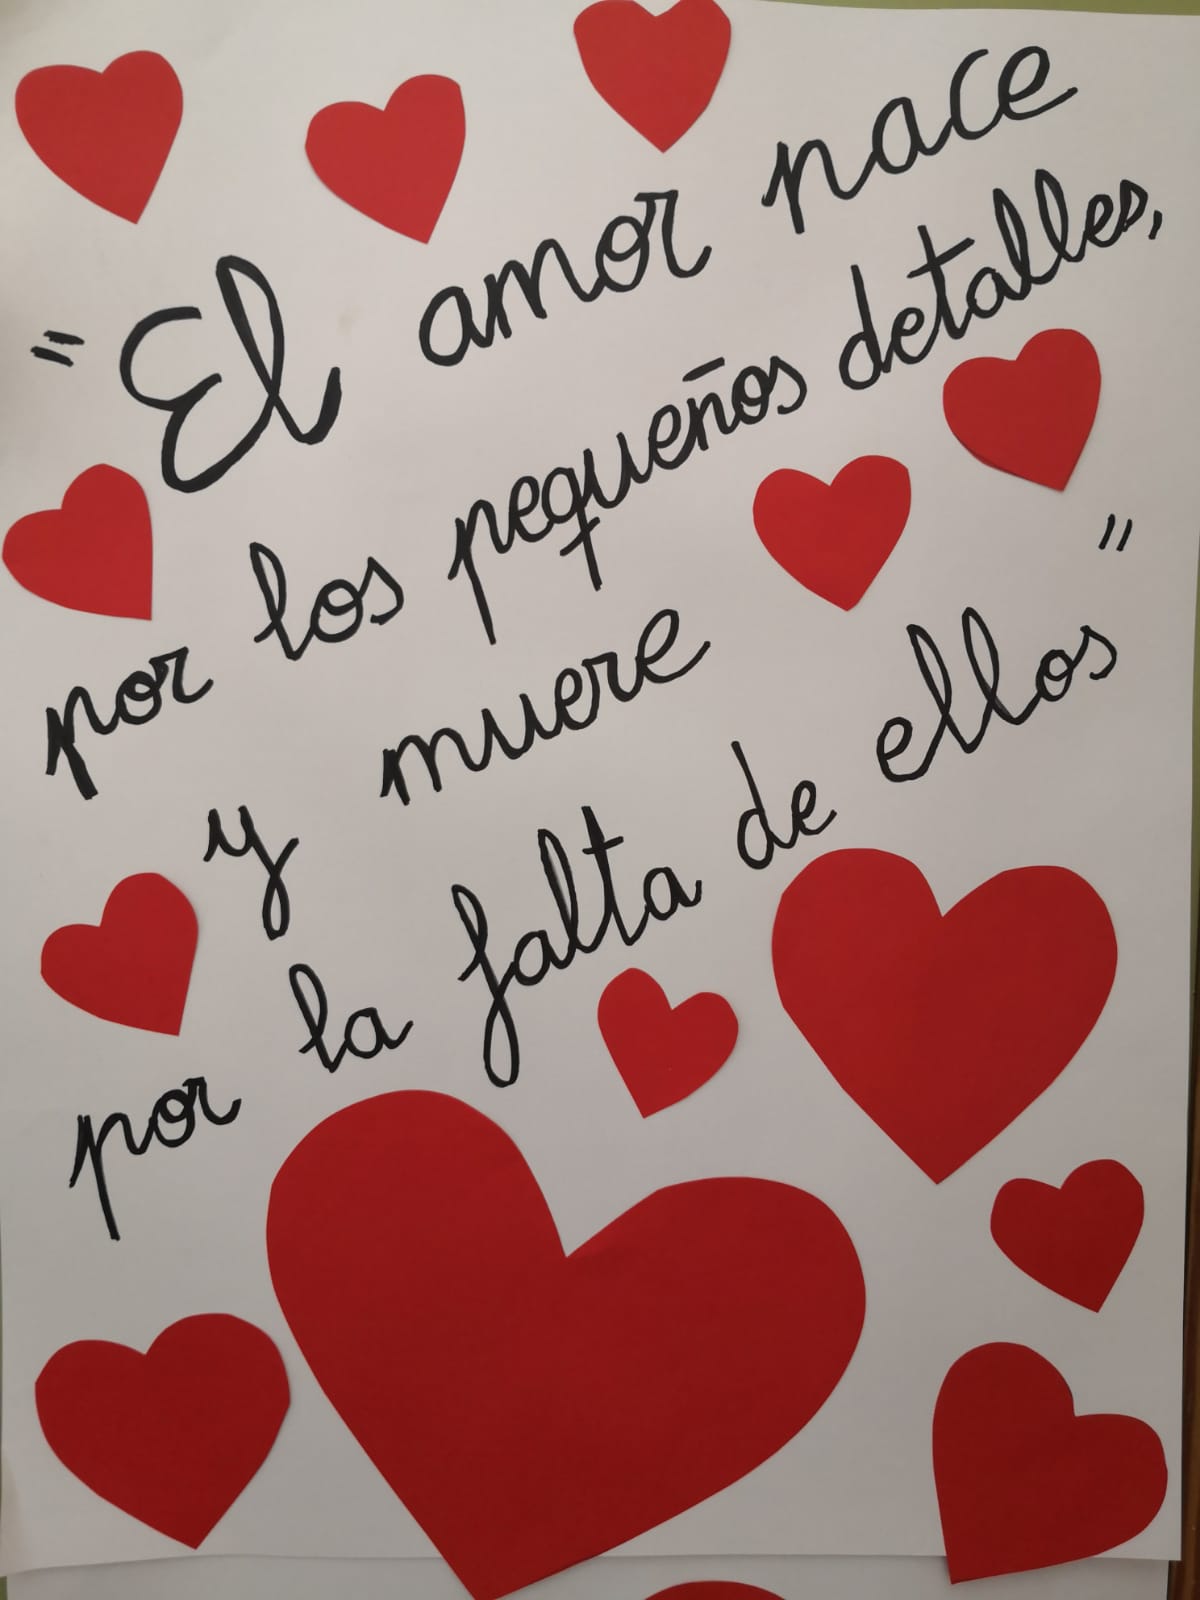 "El amor nace
por los pequeños detalles,
y muere
por la falta de ellos"